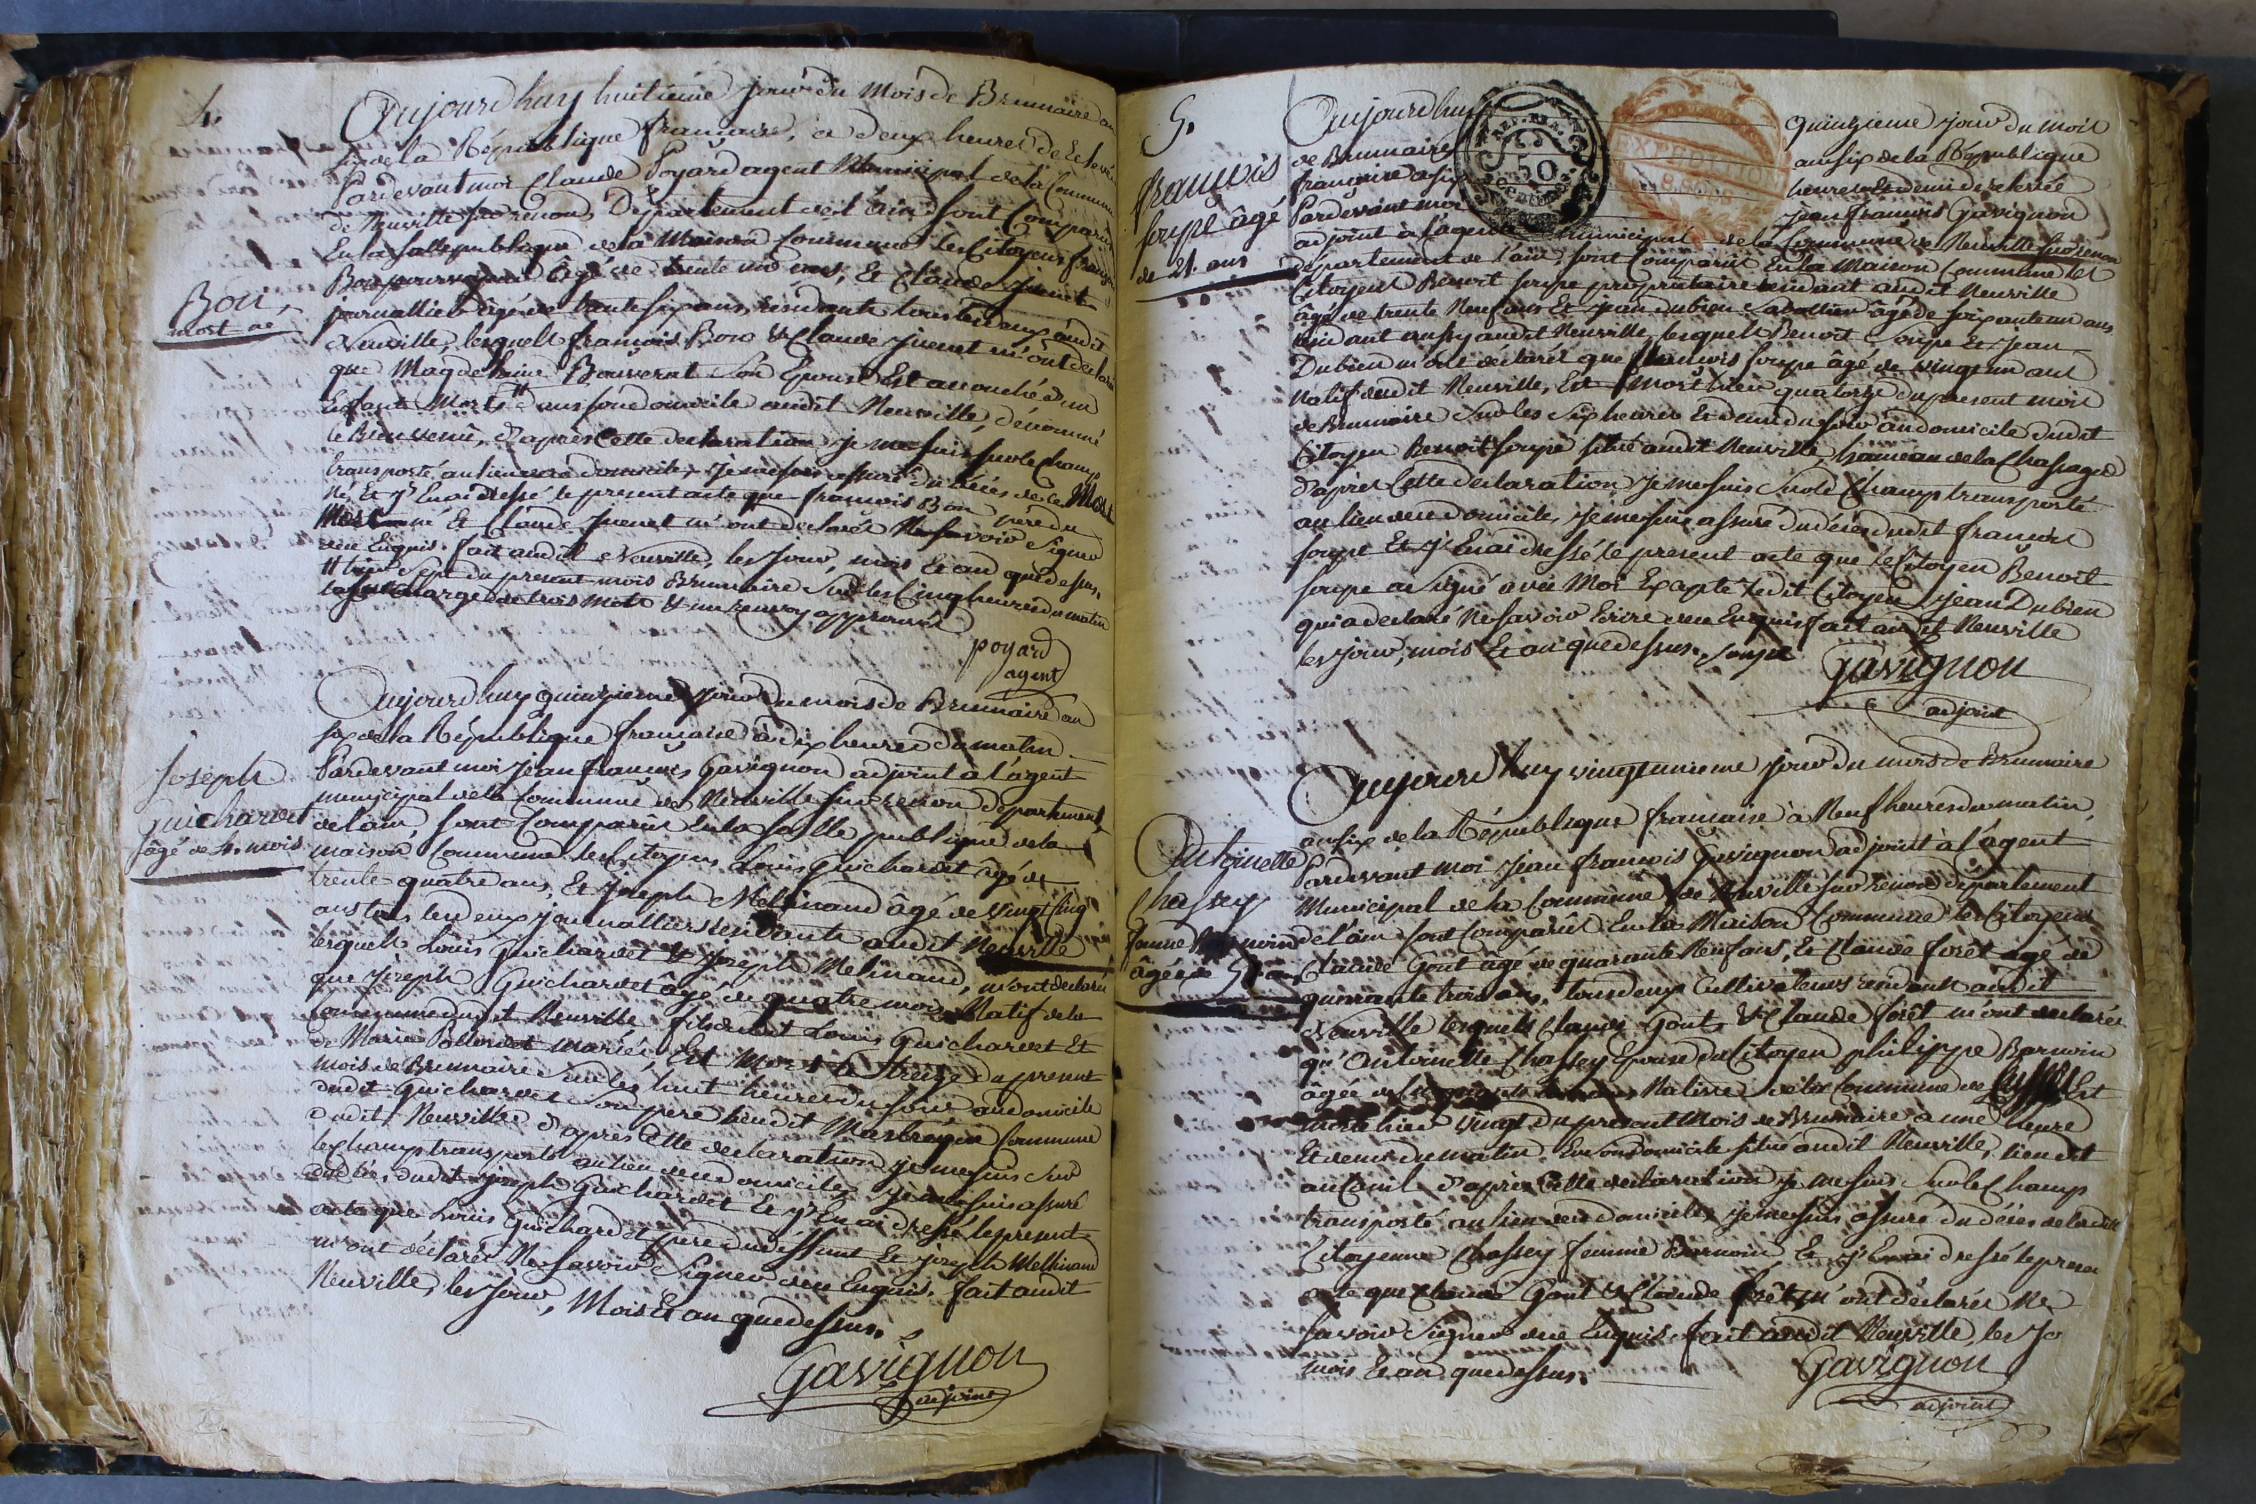 4.
Aujourd huy huitieme jour du Mois de Brumaire an
six de la République française, a deux heures de relevée
Pardevant moi Claude Poyard agent Municipal de la Commune
de Neuville sur renon, Département de l'ain, sont Comparus
En la salle publique de la Maison Commune les Citoyens françois
Bon âgé de trente ans, Et Claude Juenet
journallier âgé de trente six ans, résidants tous les deux audit
Neuville, lesquels françois Bon & Claude Juenet m'ont declaré
que Magdelaine Bouverat son Epouse Est accouchée d'un
Enfant Mort # dans son domicile audit Neuville, dénommé
le Bienvenu, d'après Cette declaration je me suis sur le Champ
transporté au lieu du domicile, je me suis assuré du décès de ce Mort
né, Et j'En ai dressé le present acte que françois Bon père du
Mort né Et Claude Juenet m'ont declarés Ne savoir Signer
de ce Enquis. fait audit Neuville, les Jour, mois Et an que dessus,
# hier sept du present mois Brumaire sur les Cinq heures du matin
trois Mots & un renvoy approuvés
poyard
agent
Bon,
mort né
Aujourd huy quinzieme jour du mois de Brumaire an
six de la République française à dix heures du matin
Pardevant moi Jean françois Gavignon adjoint à l'agent
municipal de la Commune de Neuville sur renon département
de l'ain, sont Comparus En la Salle publique de la
maison Commune les Citoyens Louis Guichardet âgé de
trente quatre ans, Et Joseph Melinand âgé de vingt cinq
ans tous les deux journalliers résidants audit Neuville
lesquels Louis Guichardet & Joseph Melinand, m'ont declarés
que Joseph Guichardet âgé de quatre mois Natif de la
commune dudit Neuville fils dudit Louis Guichardet Et
de Marie mariés, Est Mort le treize du present
mois de Brumaire sur les huit heures du soir au domicile
dudit Guichardet son père lieu dit Commune
dudit Neuville d'après Cette declaration je me suis sur
le champ transporté au lieu du domicile, je me suis assuré
du décès dudit joseph Guichardet Et j'En ai dressé le present
acte que Louis Guichardet père du déffunt Et joseph Melinand
m'ont déclarés Ne savoir Signer de ce Enquis, fait audit
Neuville, les Jour, Mois Et an que dessus.
Gavignon
adjoint
Joseph
Guichardet
âgé de 4. mois
5.
Aujourd huy quinzieme jour du mois
de Brumaire an six de la République
française a six heures Et demi de relevée
Pardevant moi Jean françois Gavignon
adjoint à l'agent municipal de la Commune de Neuville sur renon
département de l'ain, sont Comparus En la Maison Commune les
Citoyens Benoit soupe propriétaire résidant audit Neuville
âgé de trente Neuf ans Et jean dubien âgé de soixante un ans
résidant aussy audit Neuville, lesquels Benoit Soupe Et Jean
Dubien m'ont declarés que françois soupe âgé de vingt un ans
Natif dudit Neuville, Est Mort hier quatorze du present mois
de Brumaire Sur les six heures Et demi du soir au domicile dudit
Citoyen Benoit soupe situé audit Neuville, hameau de la Chassagne
d'après Cette declaration, je me suis sur le Champ transporté
au lieu du domicile, je me suis assuré du décès dudit françois
soupe Et j'En ai dressé le present acte que le Citoyen Benoit
soupe a signé avec Moi Excepté ledit Citoyen jean Dubien
qui a declaré Ne savoir Ecrire de ce Enquis fait audit Neuville
les jour, mois Et an que dessus. soupe Gavignon
adjoint
REP. FER.
50
EXPEDITION
françois
soupe âgé
de 21. ans
Aujourd huy vingt unieme jour du mois de Brumaire
an six de la République française à Neuf heures du matin,
Pardevant moi Jean françois Gavignon adjoint à l'agent
Municipal de la Commune de Neuville sur renon département
de l'ain sont Comparus En la Maison Commune les Citoyens
Claude Gout âgé de quarante Neuf ans, Et Claude forêt âgé de
quarante trois ans, tous deux Cultivateurs résidants audit
Neuville lesquels Claude Gout & Claude forêt m'ont declarés
qu'Antoinette Chassey Epouse du Citoyen philippe Barnoin
âgée de ans Native de la Commune de Est
morte hier vingt du present Mois de Brumaire a une heure
Et demi du matin En son domicile situé audit Neuville, lieu dit
d'après Cette declaration je me suis sur le Champ
transporté au lieu du domicile, je me suis assuré du décès de ladite
Citoyenne Chassey femme Barnoin Et j'En ai dressé le presen
acte que Claude Gout & Claude forêt m'ont déclarés Ne
savoir Signer de ce Enquis. fait audit Neuville, les Jo
mois Et an que dessus.
Gavignon
adjoint
Antoinette
Chassey
femme Barnoin
âgée de